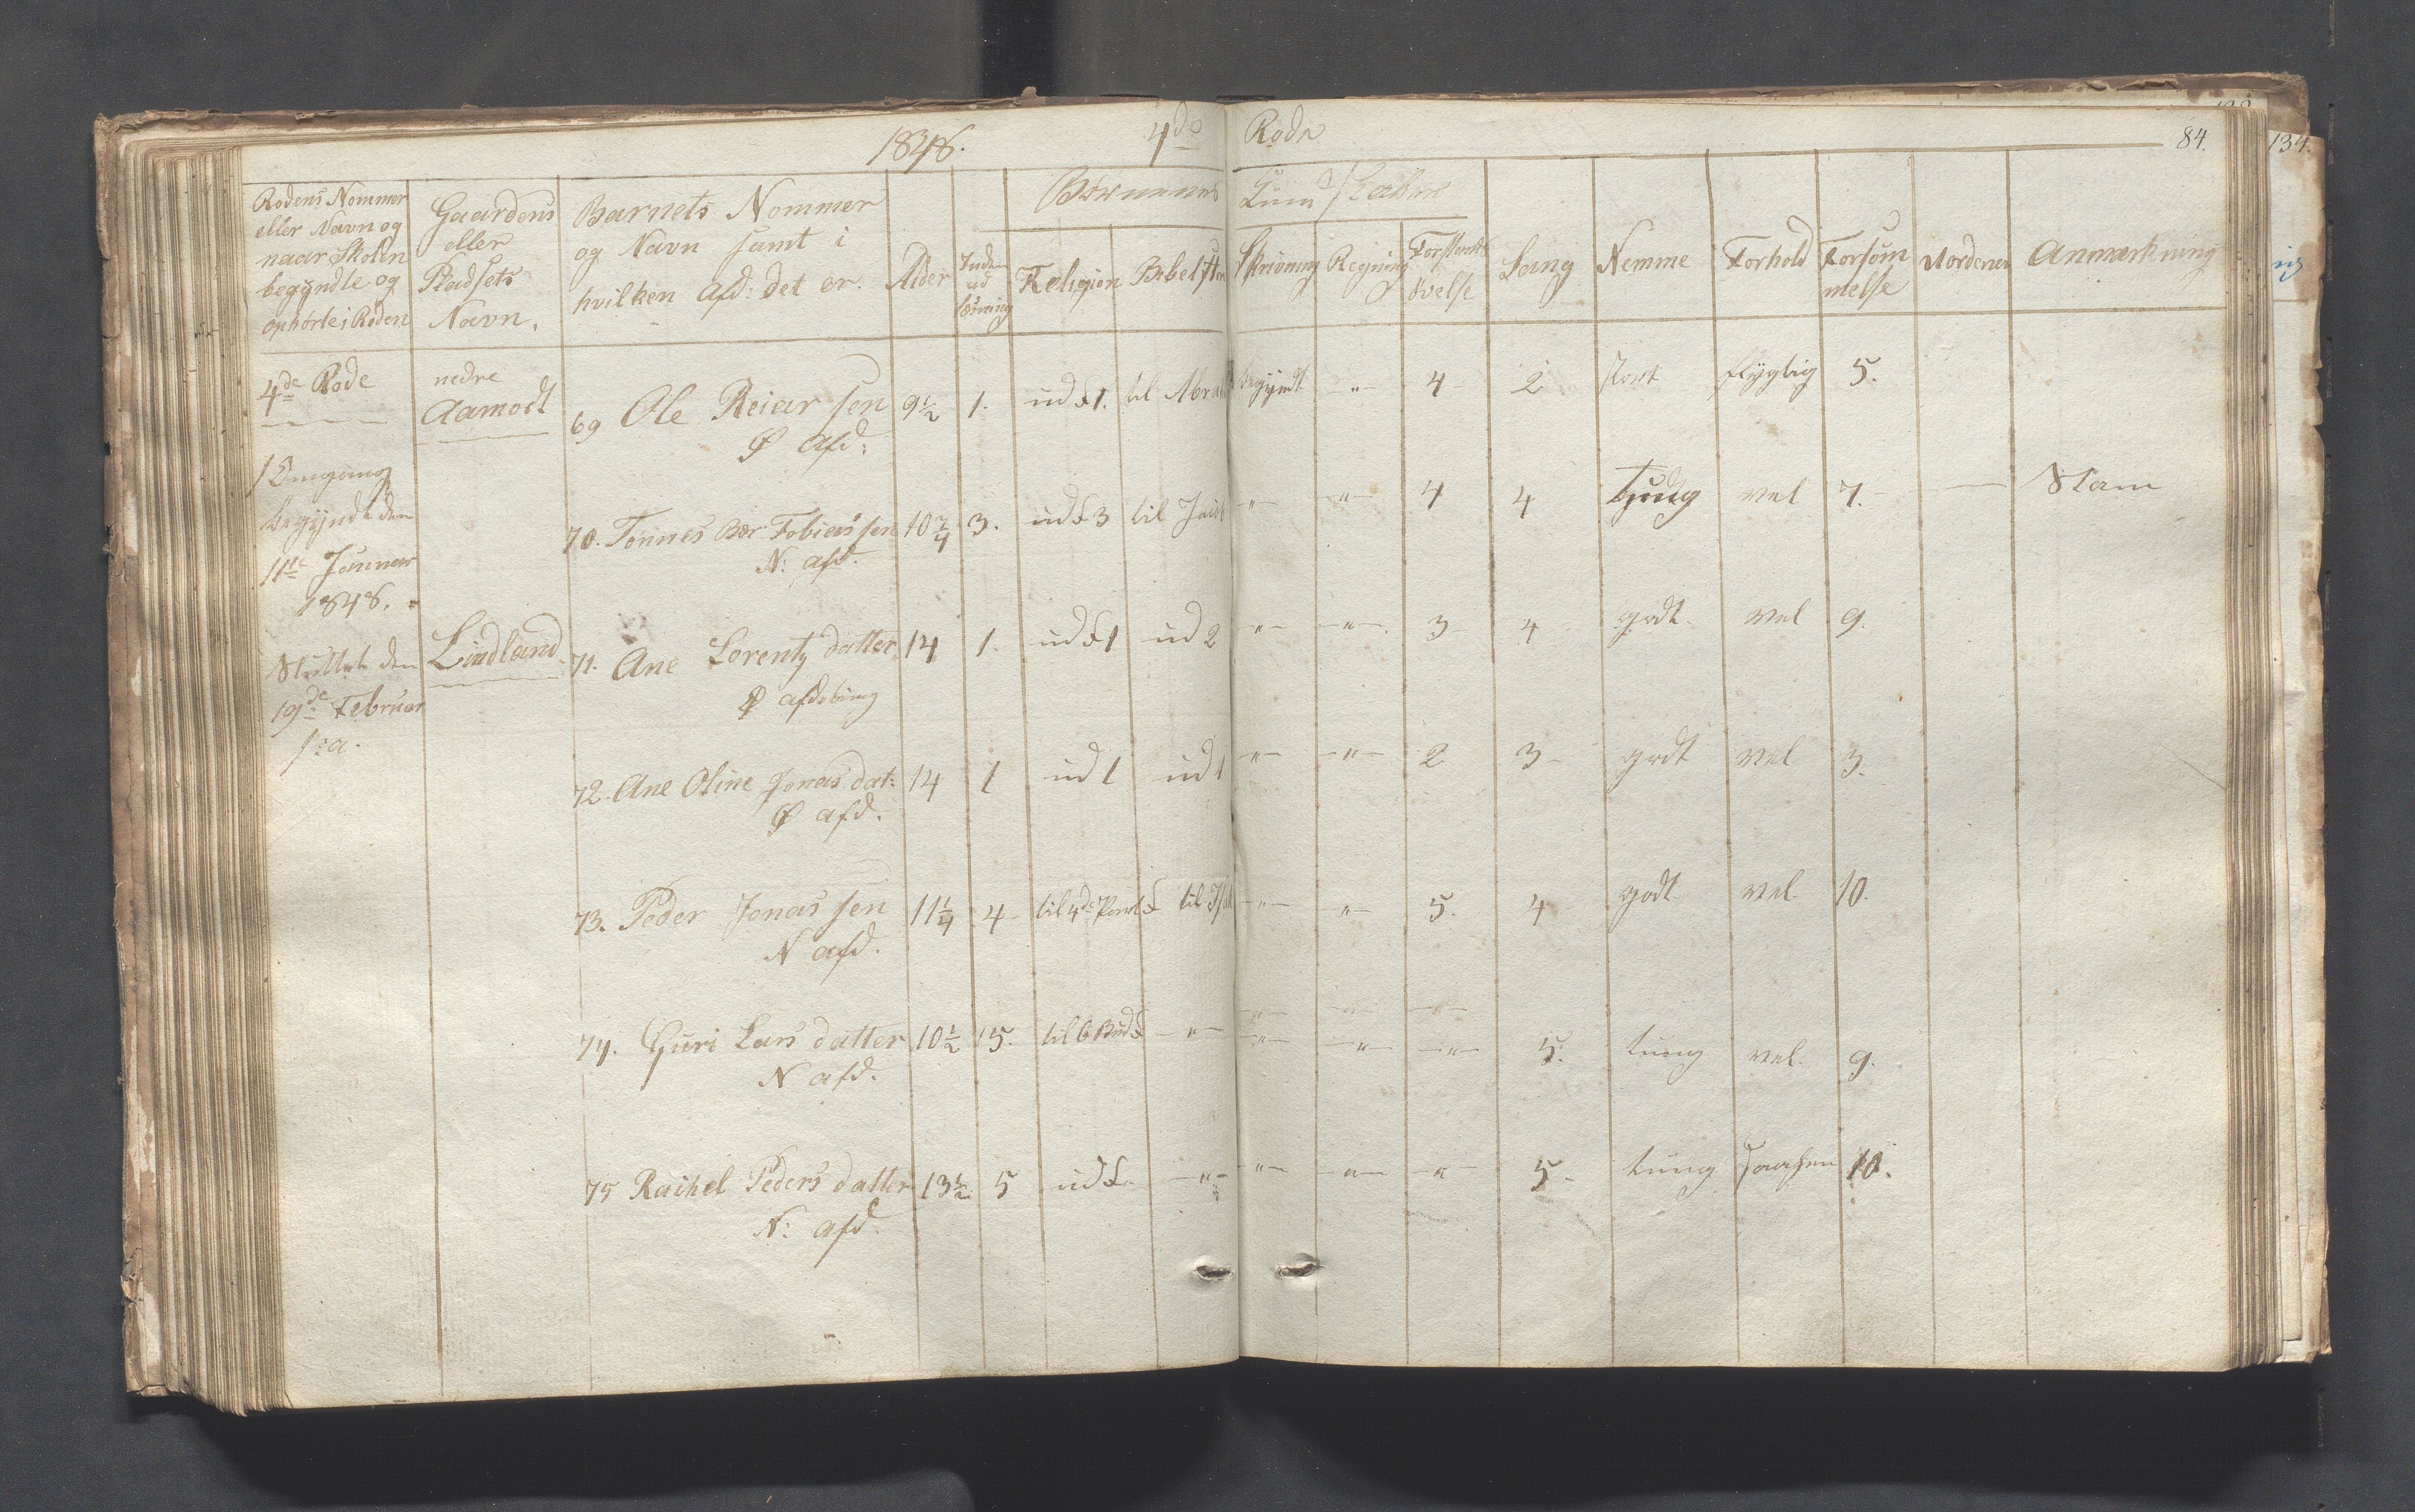 1848. 4de Rode 84. 134.
Rodens Nommer
eller Navn og
naar Skolen
begyndte og
ophørte i Roden
Gaardens
eller
Pladsets
Navn.
Barnets Nommer
og Navn samt i
hvilken Afd: det er.
Alder
Inden
ad
læsning
Børnenes Kundskaber
Religion Bibelhist
Skrivning Regning Forstands
øvelse
Sang Nemme Forhold Forsøm
melse
Anmærkning
4de Rode
1 Omgang
begyndte den
11te Januar
1848.
Sluttet den
19de Februar
s: a.
nedre
Aamodt
69 Ole Reiar sen 9½ 1. ud F 1. til Abra begyndt -"- 4 - 2 stort flygtig 5.
Ø Afd:
70. Tønnes Ber Tobias sen 10¾ 3. ud F 3 til Jac -"- -"- 4 4 tung vel 7. - Slam
N: afd.
Lindland
71. Ane Lorentz datter 14 1. ud F 1 ud 2 -"- -"- 3 4 godt vel 9.
Ø afdeling
72. Ane Oline Jonas dat: 14 1 ud 1 ud 1 -"- -"- 2 3 - godt vel 3.
Ø afd.
73. Peder Jonas sen 11¼ 4 - til 4de Part F til Isak -"- -"- 5. 4 godt vel 10.
N afd.
-"- -"- -"-
74. Guri Lars datter 10½ 5. til 6 Bud F -"- -"- -"- -"- 5. tung vel 9.
N afd.
75 Rachel Peders datter 13½ 5 ud F. -"- -"- -"- -"- 5 - tung saasen 10.
N: afd.